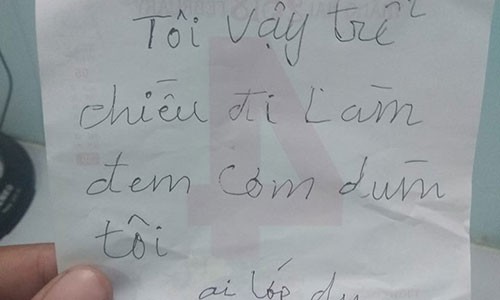 Tôi vậy trể
chiều đi Làm
đem cơm dùm
tôi
ai lớp